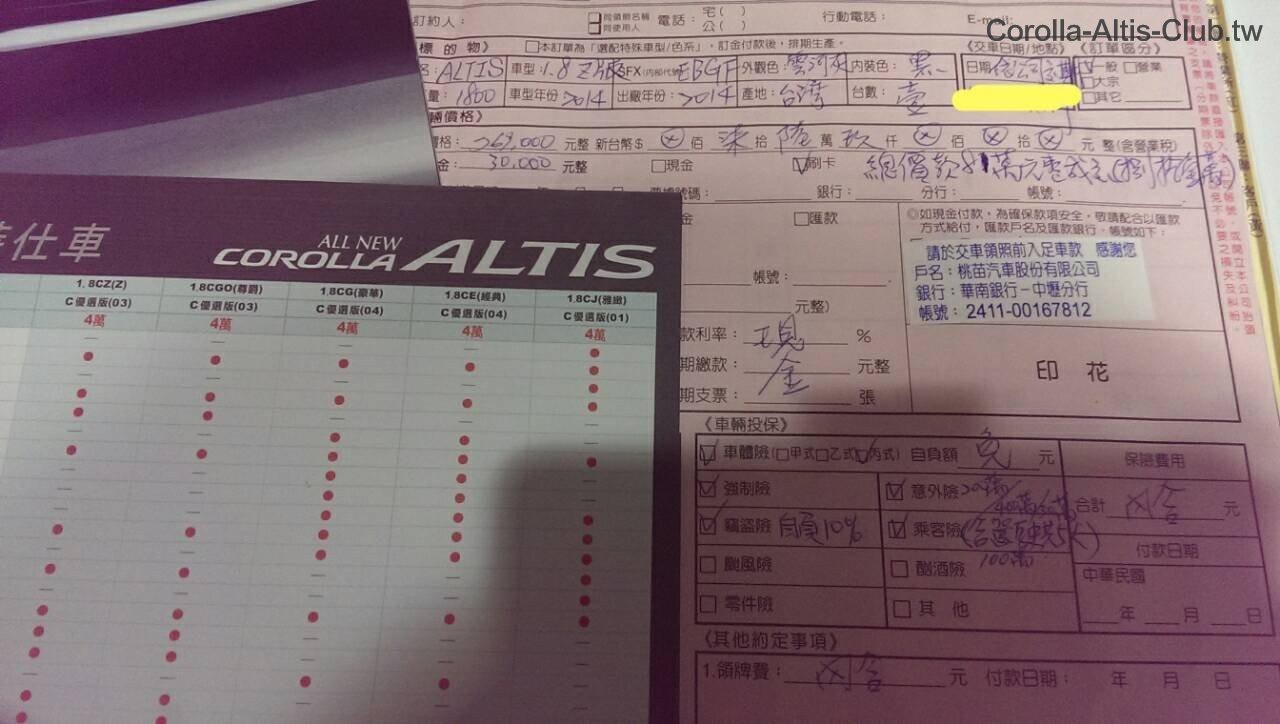 Corolla-Altis-Club.tw
訂約人： 同領牌名稱 同使用人 電話： 宅( ) 公( ) 行動電話： E-mail:
標的物》 □本訂單為「選配特殊車型/色系」，訂金付款後，排期生產。 《交車日期/地點》 《訂單區分》
ALTIS 車型：1.8 Z版 SFX(內部代號) EBGF 外觀色：雲河灰 內裝色：黑 日期 一般 □營業
量：1800 車型年份 2014 出廠年份：2014 產地：台灣 台數：壹 □大宗
□其它
輛價格》
價格：769,000 元整 新台幣$ ⊗ 佰 柒 拾 陸 萬 玖 仟 ⊗ 佰 ⊗ 拾 ⊗ 元 整(含營業稅)
金：30,000 元整 □現金 ☑刷卡 總價款81萬元
票據號碼： 銀行： 分行： 帳號：
金 □匯款
◎如現金付款，為確保款項安全，敬請配合以匯款
方式給付，匯款戶名及匯款銀行、帳號如下：
請於交車領照前入足車款 感謝您
戶名：桃苗汽車股份有限公司
銀行：華南銀行－中壢分行
帳號：2411-00167812
帳號：
元整)
款利率：現 %
期繳款：金 元整
期支票： 張
印 花
《車輛投保》
☑車體險(□甲式□乙式☑丙式) 自負額 免 元 保險費用
☑強制險 ☑意外險 合計 內含 元
☑竊盜險 自負10% ☑乘客險 付款日期
100萬
□颱風險 □酗酒險 中華民國
□零件險 □其 他 年 月 日
《其他約定事項》
1.領牌費：內含 元 付款日期： 年 月 日
仕車
ALL NEW
COROLLA ALTIS
1.8CZ(Z) 1.8CGO(尊爵) 1.8CG(豪華) 1.8CE(經典) 1.8CJ(雅緻)
C優選版(03) C優選版(03) C優選版(04) C優選版(04) C優選版(01)
4萬 4萬 4萬 4萬 4萬